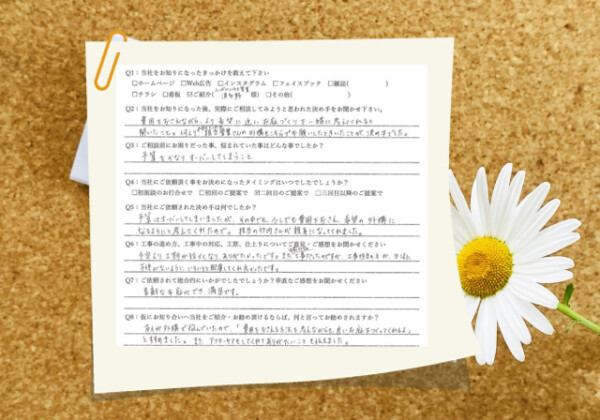 Q1：当社をお知りになったきっかけを教えて下さい
□ホームページ □Web広告 □インスタグラム □フェイスブック □雑誌( )
□チラシ □看板 ☑ご紹介( 様) □その他( )
Q2：当社をお知りになった後、実際にご相談してみようと思われた決め手をお聞かせ下さい。
費用をおさえながら、より希望に近いお庭づくりを一緒に考えてくれると
聞いたこと。何より さんの外構もこちらでお願いしたときいたことが、決め手でした。
Q3：ご相談前にお困りだった事、悩まれていた事はどんな事でしたか？
予算をかなりオーバーしてしまうこと
Q4：当社にご依頼頂く事をお決めになったタイミングはいつでしたでしょうか？
□初面談のお打合せで □初回のご提案で ☑二回目のご提案で □三回目以降のご提案で
Q5：当社にご依頼された決め手は何でしたか？
予算はオーバーしてしまいましたが、その中でも、少しでも費用をおさえ、希望の外構に
なるようにと考えてくれたので。担当の竹内さんが親身になってくれました。
Q6：工事の進め方、工事中の対応、工期、仕上りについてご意見・ご感想をお聞かせください
予定より工期が短くなり、ありがたかったです。まだ工事だったのですが、工事担当の方が、
不便がないようにいろいろと配慮してくれ良かったです。
Q7：ご依頼されて総合的にいかがでしたでしょうか？率直なご感想をお聞かせください
素敵なお庭ができ、満足です。
Q8：仮にお知り合いへ当社をご紹介・お勧め頂けるならば、何と言ってお勧めされますか？
友人が外構で悩んでいたので、「費用をおさえる方法を考えながら、良いお庭をつくってくれるよ」
と勧めました。また、アフターケアもしてくれてありがたいことも伝えました。